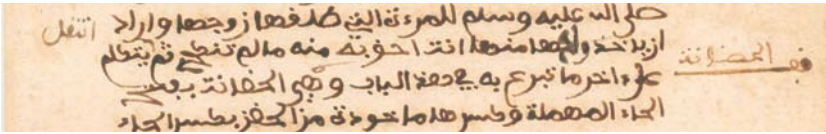 صلى الله عليه وسلم للمرءة التي طلقها زوجها واراد انتقل
ان ياخذ ولدها منها انت احق به منه ما لم تنكحي ثم يتكلم
على اخر ما تبرع به في هذا الباب وهي الحضانة بفتح
الحاء المهملة وكسرها ماخوذة من الحضن بكسر الحاء
ف الحضانة